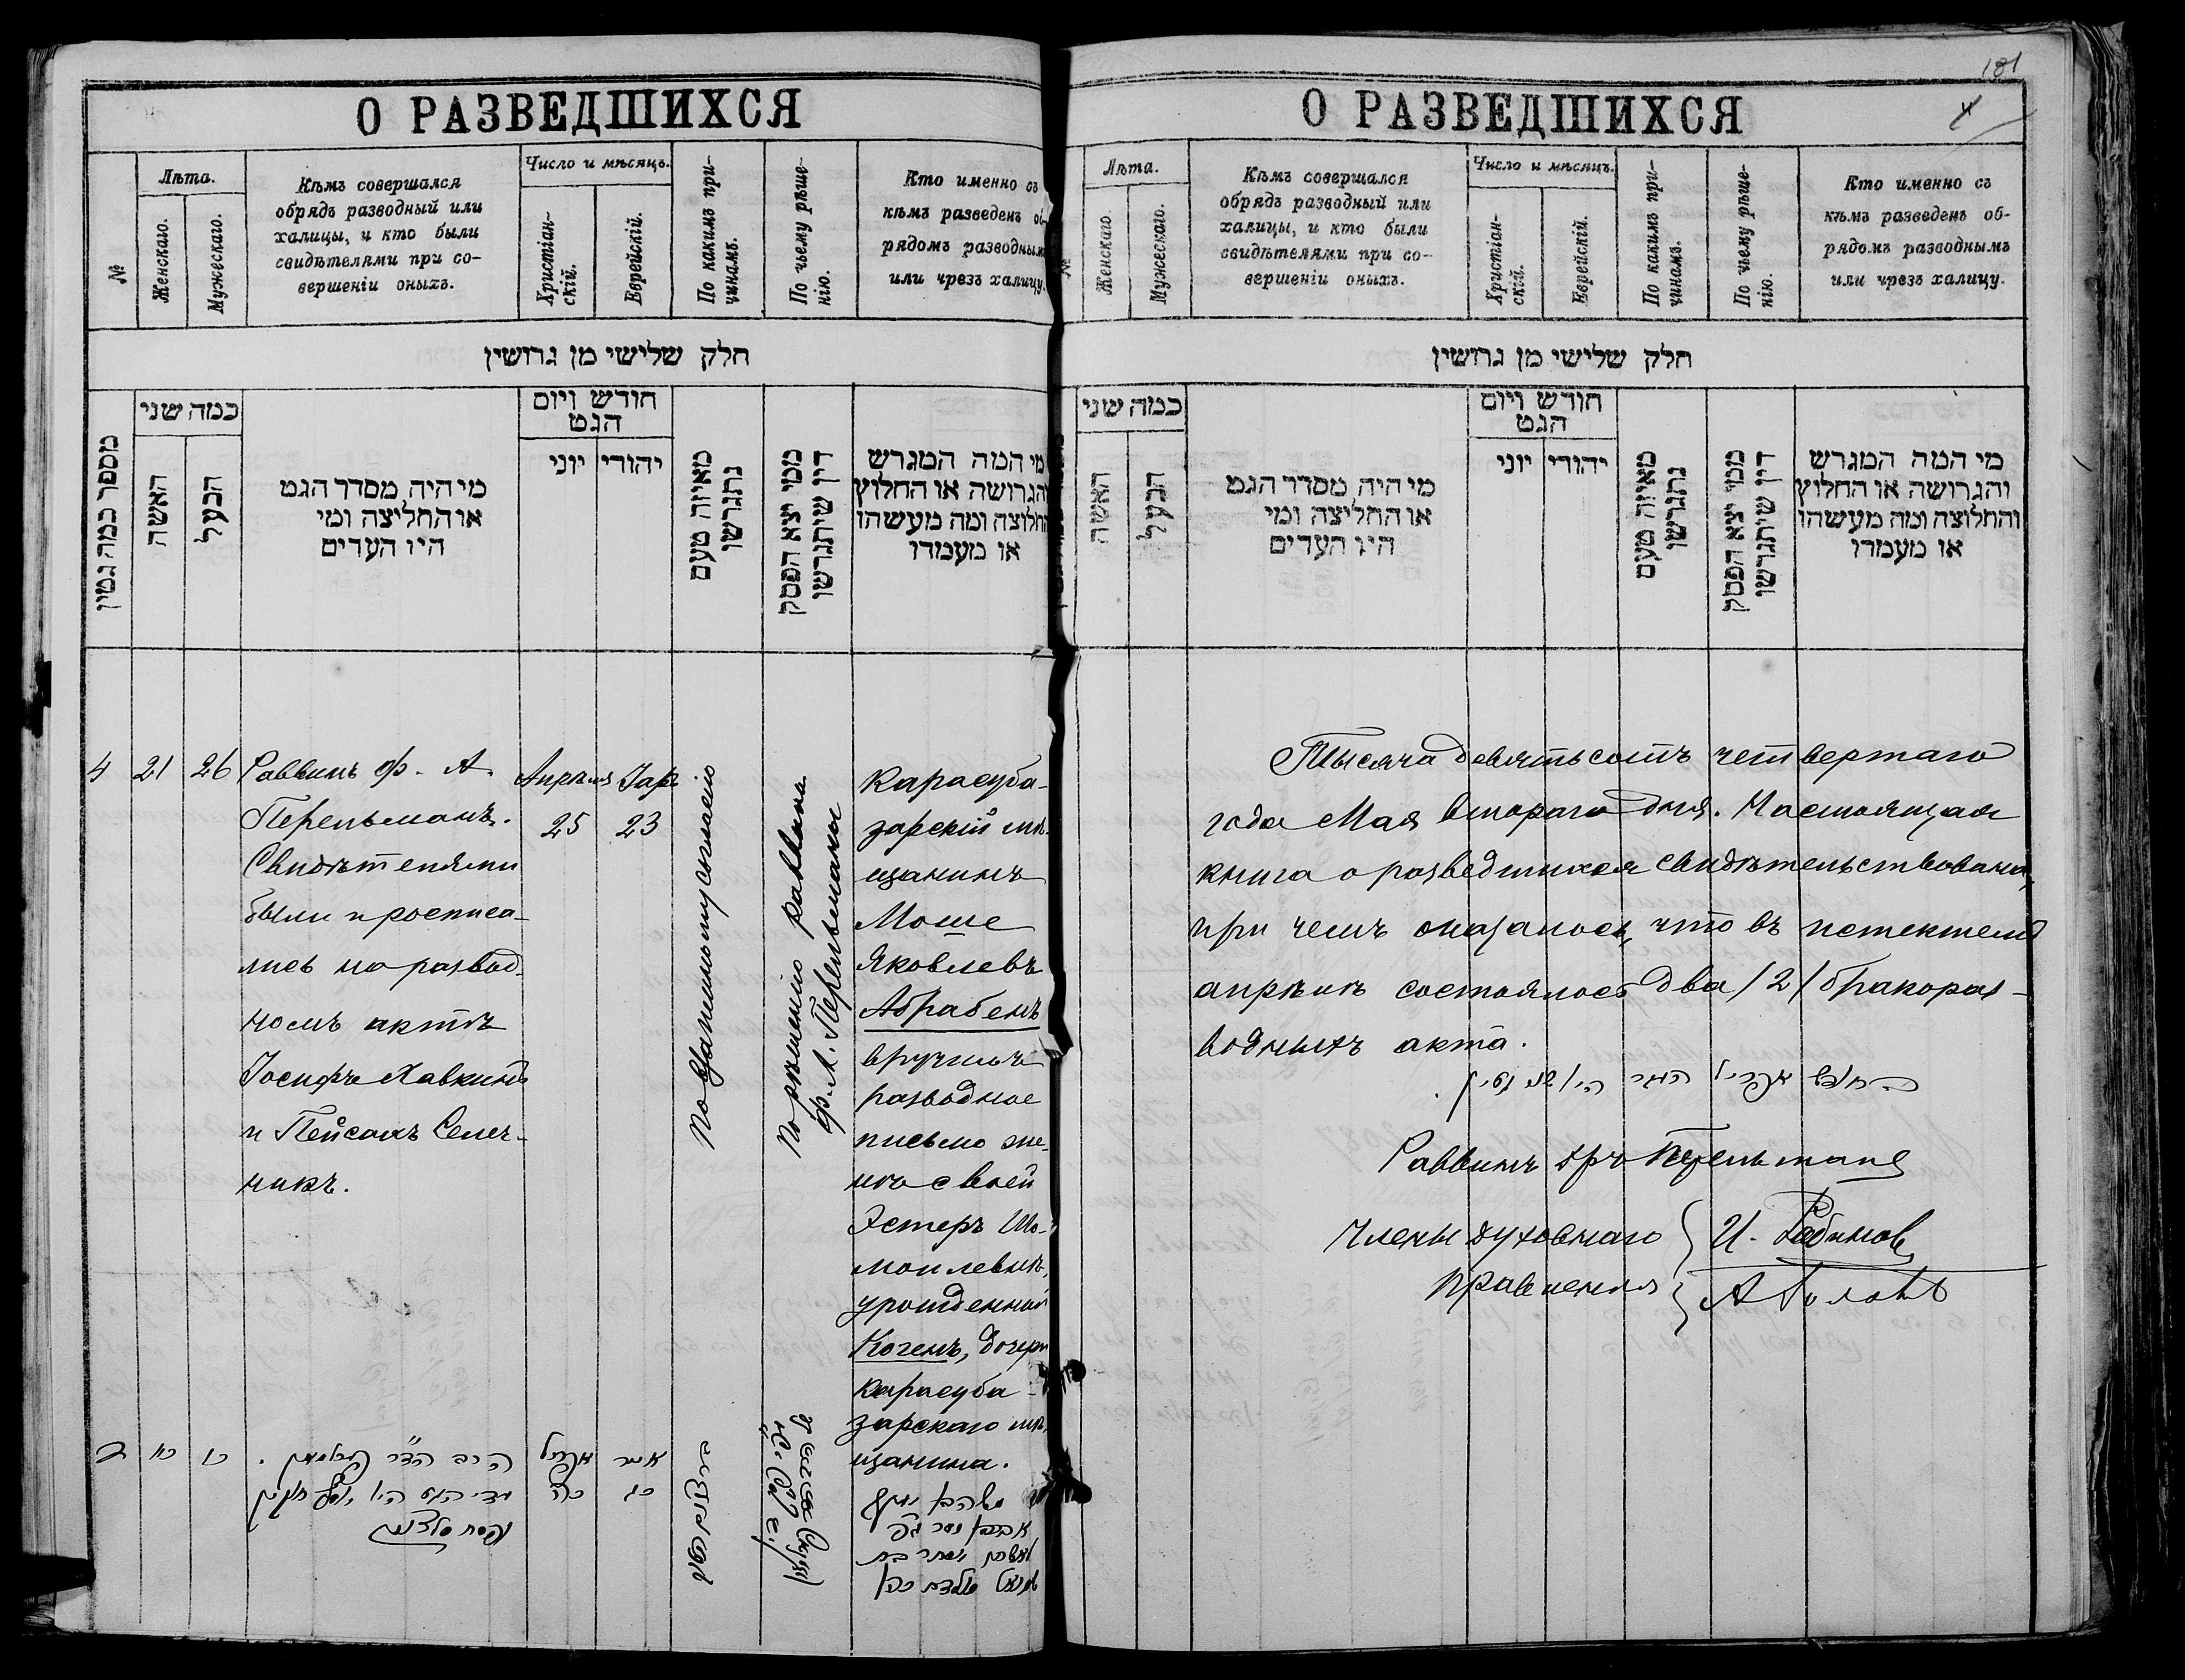 О РАЗВЕДШИХСЯ
№
Лѣта.
Женскаго.
Мужескаго.
Кѣмъ совершался
обрядъ разводный или
халицы, и кто были
свидѣтелями при со-
вершеніи оныхъ.
Число и мѣсяцъ.
Христіан-
скій.
Еврейскій.
По какимъ при-
чинамъ.
По чьему рѣше-
нію.
Кто именно съ
кѣмъ разведенъ об-
рядомъ разводнымъ
или чрезъ халицу.
חלק שלישי מן גרושין
מספר כמה גטין
כמה שני
האשה
הבעל
מי היה מסדר הגט
או החליצה ומי
היו העדים
חודש ויום
הגט
יהודי
יוני
מאיזה טעם
נתגרשו
ממי יצא הפסק
דין שיתגרשו
מי המה המגרש
והגרושה או החלוץ
והחלוצה ומה מעשהו
או מעמדו
4
21
26
Раввинъ Ф. А.
Перельманъ.
Свидѣтелями
были и росписа-
лись на развод-
номъ актѣ
Іосифъ Хавкинъ
и Пейсахъ Селеч-
никъ.
Апрѣля
25
Іаръ
23
По взаимному согласію
По рѣшенію раввина
Ф. А. Перельмана
Карасуба-
зарскій мѣ-
щанинъ
Моше
Яковлевъ
Абрабенъ
вручилъ
разводное
письмо же-
нѣ своей
Эстеръ Шо-
моилевнѣ,
урожденной
Когенъ, дочери
Карасуба-
зарскаго мѣ-
щанина.
ד
כא
כו
הרב הד"ר פרלמאן.
עדי הגט היו יוסף חאווקין
ופסח סלצניק
אפריל
כה
אייר
כג
О РАЗВЕДШИХСЯ
181
4
№
Лѣта.
Женскаго.
Мужескаго.
Кѣмъ совершался
обрядъ разводный или
халицы, и кто были
свидѣтелями при со-
вершеніи оныхъ.
Число и мѣсяцъ.
Христіан-
скій.
Еврейскій.
По какимъ при-
чинамъ.
По чьему рѣше-
нію.
Кто именно съ
кѣмъ разведенъ об-
рядомъ разводнымъ
или чрезъ халицу.
חלק שלישי מן גרושין
כמה שני
האשה
הבעל
מי היה מסדר הגט
או החליצה ומי
היו העדים
חודש ויום
הגט
יהודי
יוני
מאיזה טעם
נתגרשו
ממי יצא הפסק
דין שיתגרשו
מי המה המגרש
והגרושה או החלוץ
והחלוצה ומה מעשהו
או מעמדו
Тысяча девятьсотъ четвертаго
года Мая второго дня. Настоящая
книга о разведшихся свидѣтельствована,
при чемъ оказалось, что въ истекшемъ
апрѣлѣ состоялось два /2/ бракораз-
водныхъ акта.
בחודש אפריל העבר היו שני גטין.
Раввинъ дръ Перельманъ
Члены духовнаго
правленія
И. Рабинов